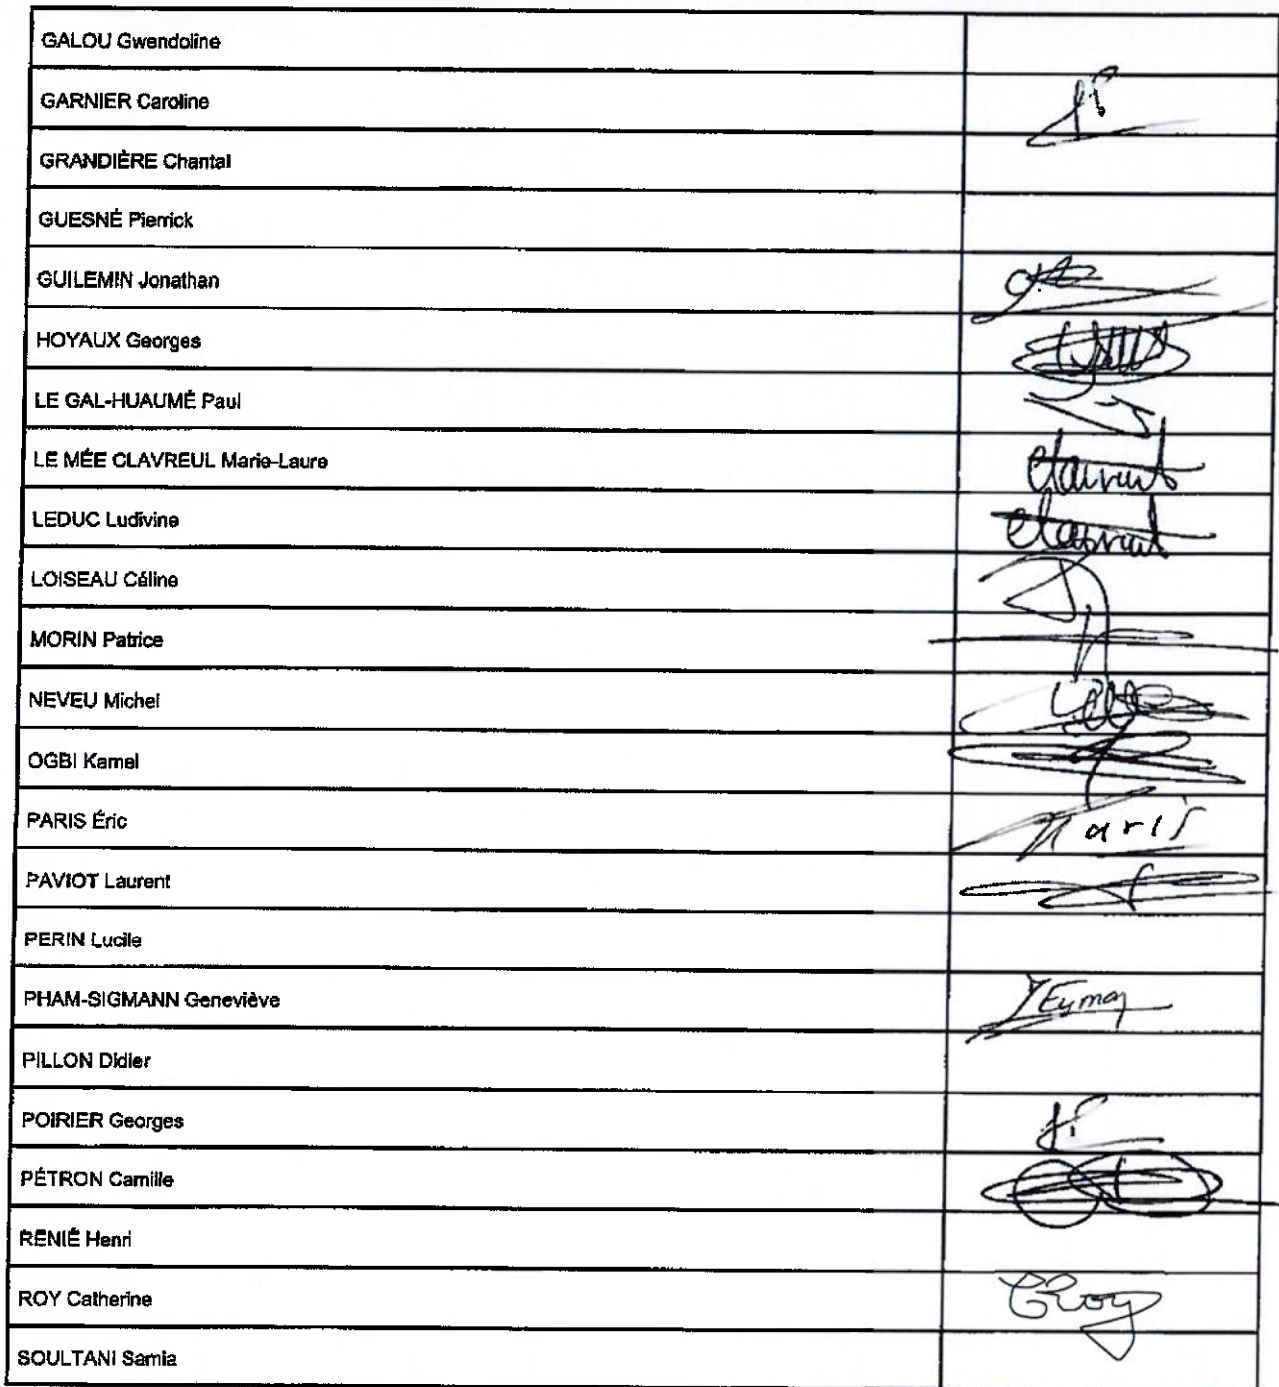 GALOU Gwendoline
GARNIER Caroline
GRANDIÈRE Chantal
GUESNÉ Pierrick
GUILEMIN Jonathan
HOYAUX Georges
LE GAL-HUAUMÉ Paul
LE MÉE CLAVREUL Marie-Laure
LEDUC Ludivine
LOISEAU Céline
MORIN Patrice
NEVEU Michel
OGBI Kamel
PARIS Éric Paris
PAVIOT Laurent
PERIN Lucile
PHAM-SIGMANN Geneviève
PILLON Didier
POIRIER Georges
PÉTRON Camille
RENIÉ Henri
ROY Catherine CRoy
SOULTANI Samia